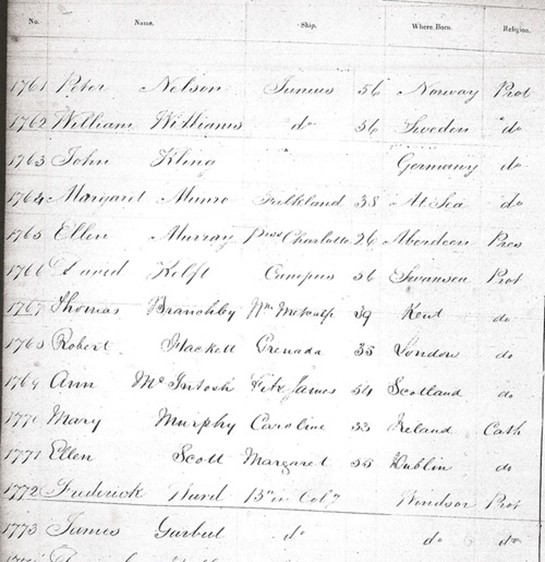 No. Name. Ship. Where Born. Religion.
1761 Peter Nelson Junius 56 Norway Prot
1762 William Williams do 56 Sweden do
1763 John Kling Germany do
1764 Margaret Munro Falkland 38 At Sea do
1765 Ellen Murray Pss Charlotte 26 Aberdeen Pres
1766 David Canopus 56 Swansea Prot
1767 Thomas Branchby Wm Metcalfe 39 Kent do
1768 Robert Hackett Grenada 35 London do
1769 Ann McIntosh Fitz James 54 Scotland do
1770 Mary Murphy Caroline 33 Ireland Cath
1771 Ellen Scott Margaret 55 Dublin do
1772 Frederick Ward Bn in Coly Windsor Prot
1773 James Garbut do do do